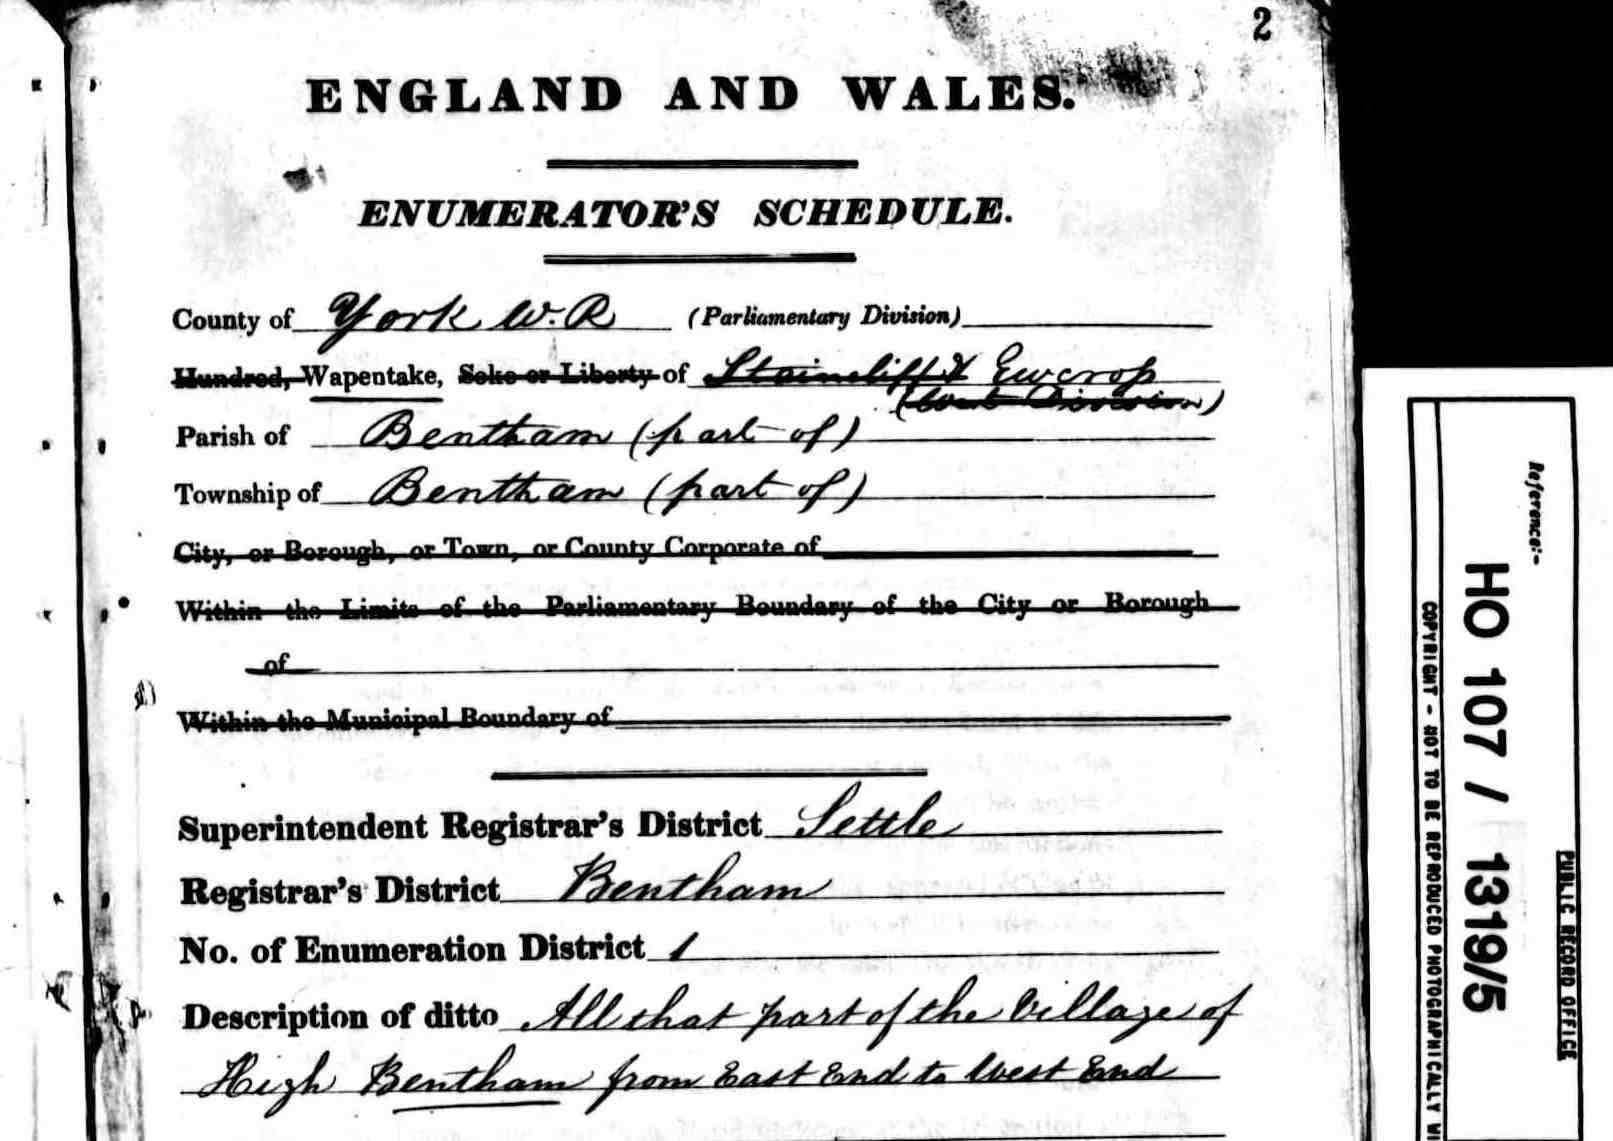 2
ENGLAND AND WALES.
ENUMERATOR'S SCHEDULE.
County of York W. R (Parliamentary Division)
Hundred, Wapentake, Soke or Liberty of Staincliff & Ewcross
(West Division)
Parish of Bentham (part of)
Township of Bentham (part of)
City, or Borough, or Town, or County Corporate of
Within the Limits of the Parliamentary Boundary of the City or Borough
of
Within the Municipal Boundary of
Superintendent Registrar's District Settle
Registrar's District Bentham
No. of Enumeration District 1
Description of ditto All that part of the Village of
High Bentham from East End to West End
Reference:-
HO 107 / 1319/5
PUBLIC RECORD OFFICE
COPYRIGHT - NOT TO BE REPRODUCED PHOTOGRAPHICALLY WI